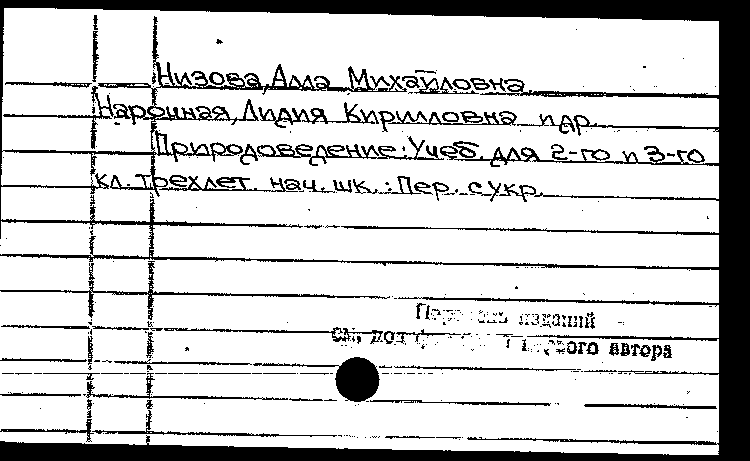 Низова, Алла Михайловна
Нарочная, Лидия Кирилловна и др.
Природоведение: Учеб. для 2-го и 3-го
кл. трехлет. нач. шк. : Пер. с укр.
изданий
см. под автора